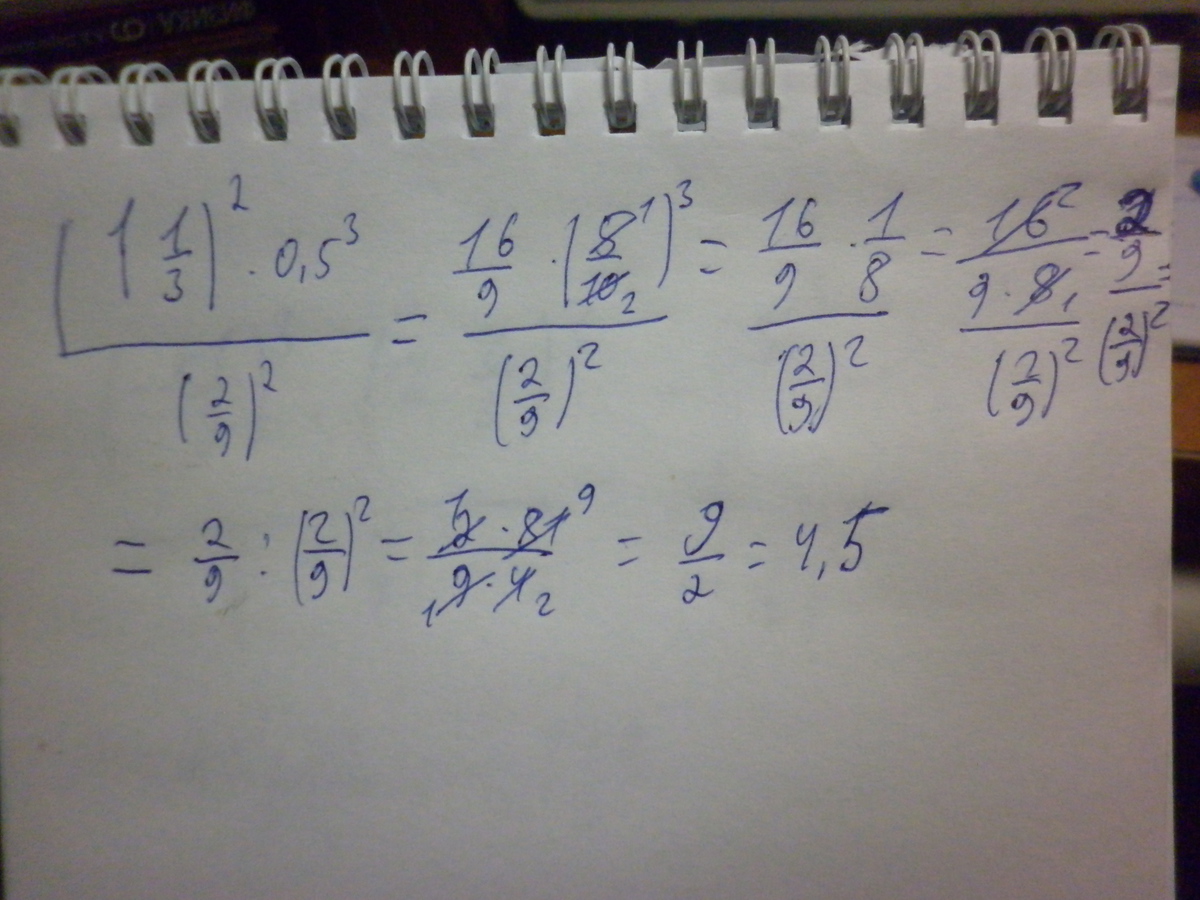 ФИЗИКА 9
(1 1/3)^2 · 0,5^3 / (2/9)^2 = 16/9 · (5^1/10_2)^3 / (2/9)^2 = 16/9 · 1/8 / (2/9)^2 = 16^2/(9·8_1) / (2/9)^2 = 2/9 / (2/9)^2 =
= 2/9 : (2/9)^2 = 1 2 · 81 9 / 1 9 · 4 2 = 9/2 = 4,5